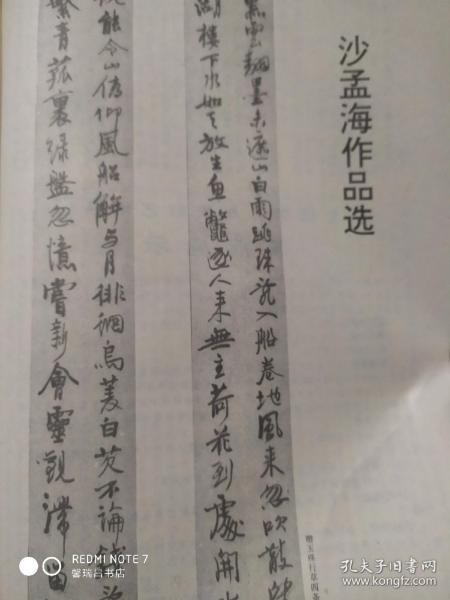 沙孟海作品选
黑雲翻墨未遮山白雨跳珠乱入船卷地風来忽吹散望
湖樓下水如天放生魚鱉逐人来無主荷花到處開水
枕能令山俯仰風船解与月徘徊烏菱白芡不論錢亂
繫青菰裹綠盤忽憶嘗新會靈觀滯留
行草四条
REDMI NOTE 7
馨瑞阁书店
孔夫子旧书网